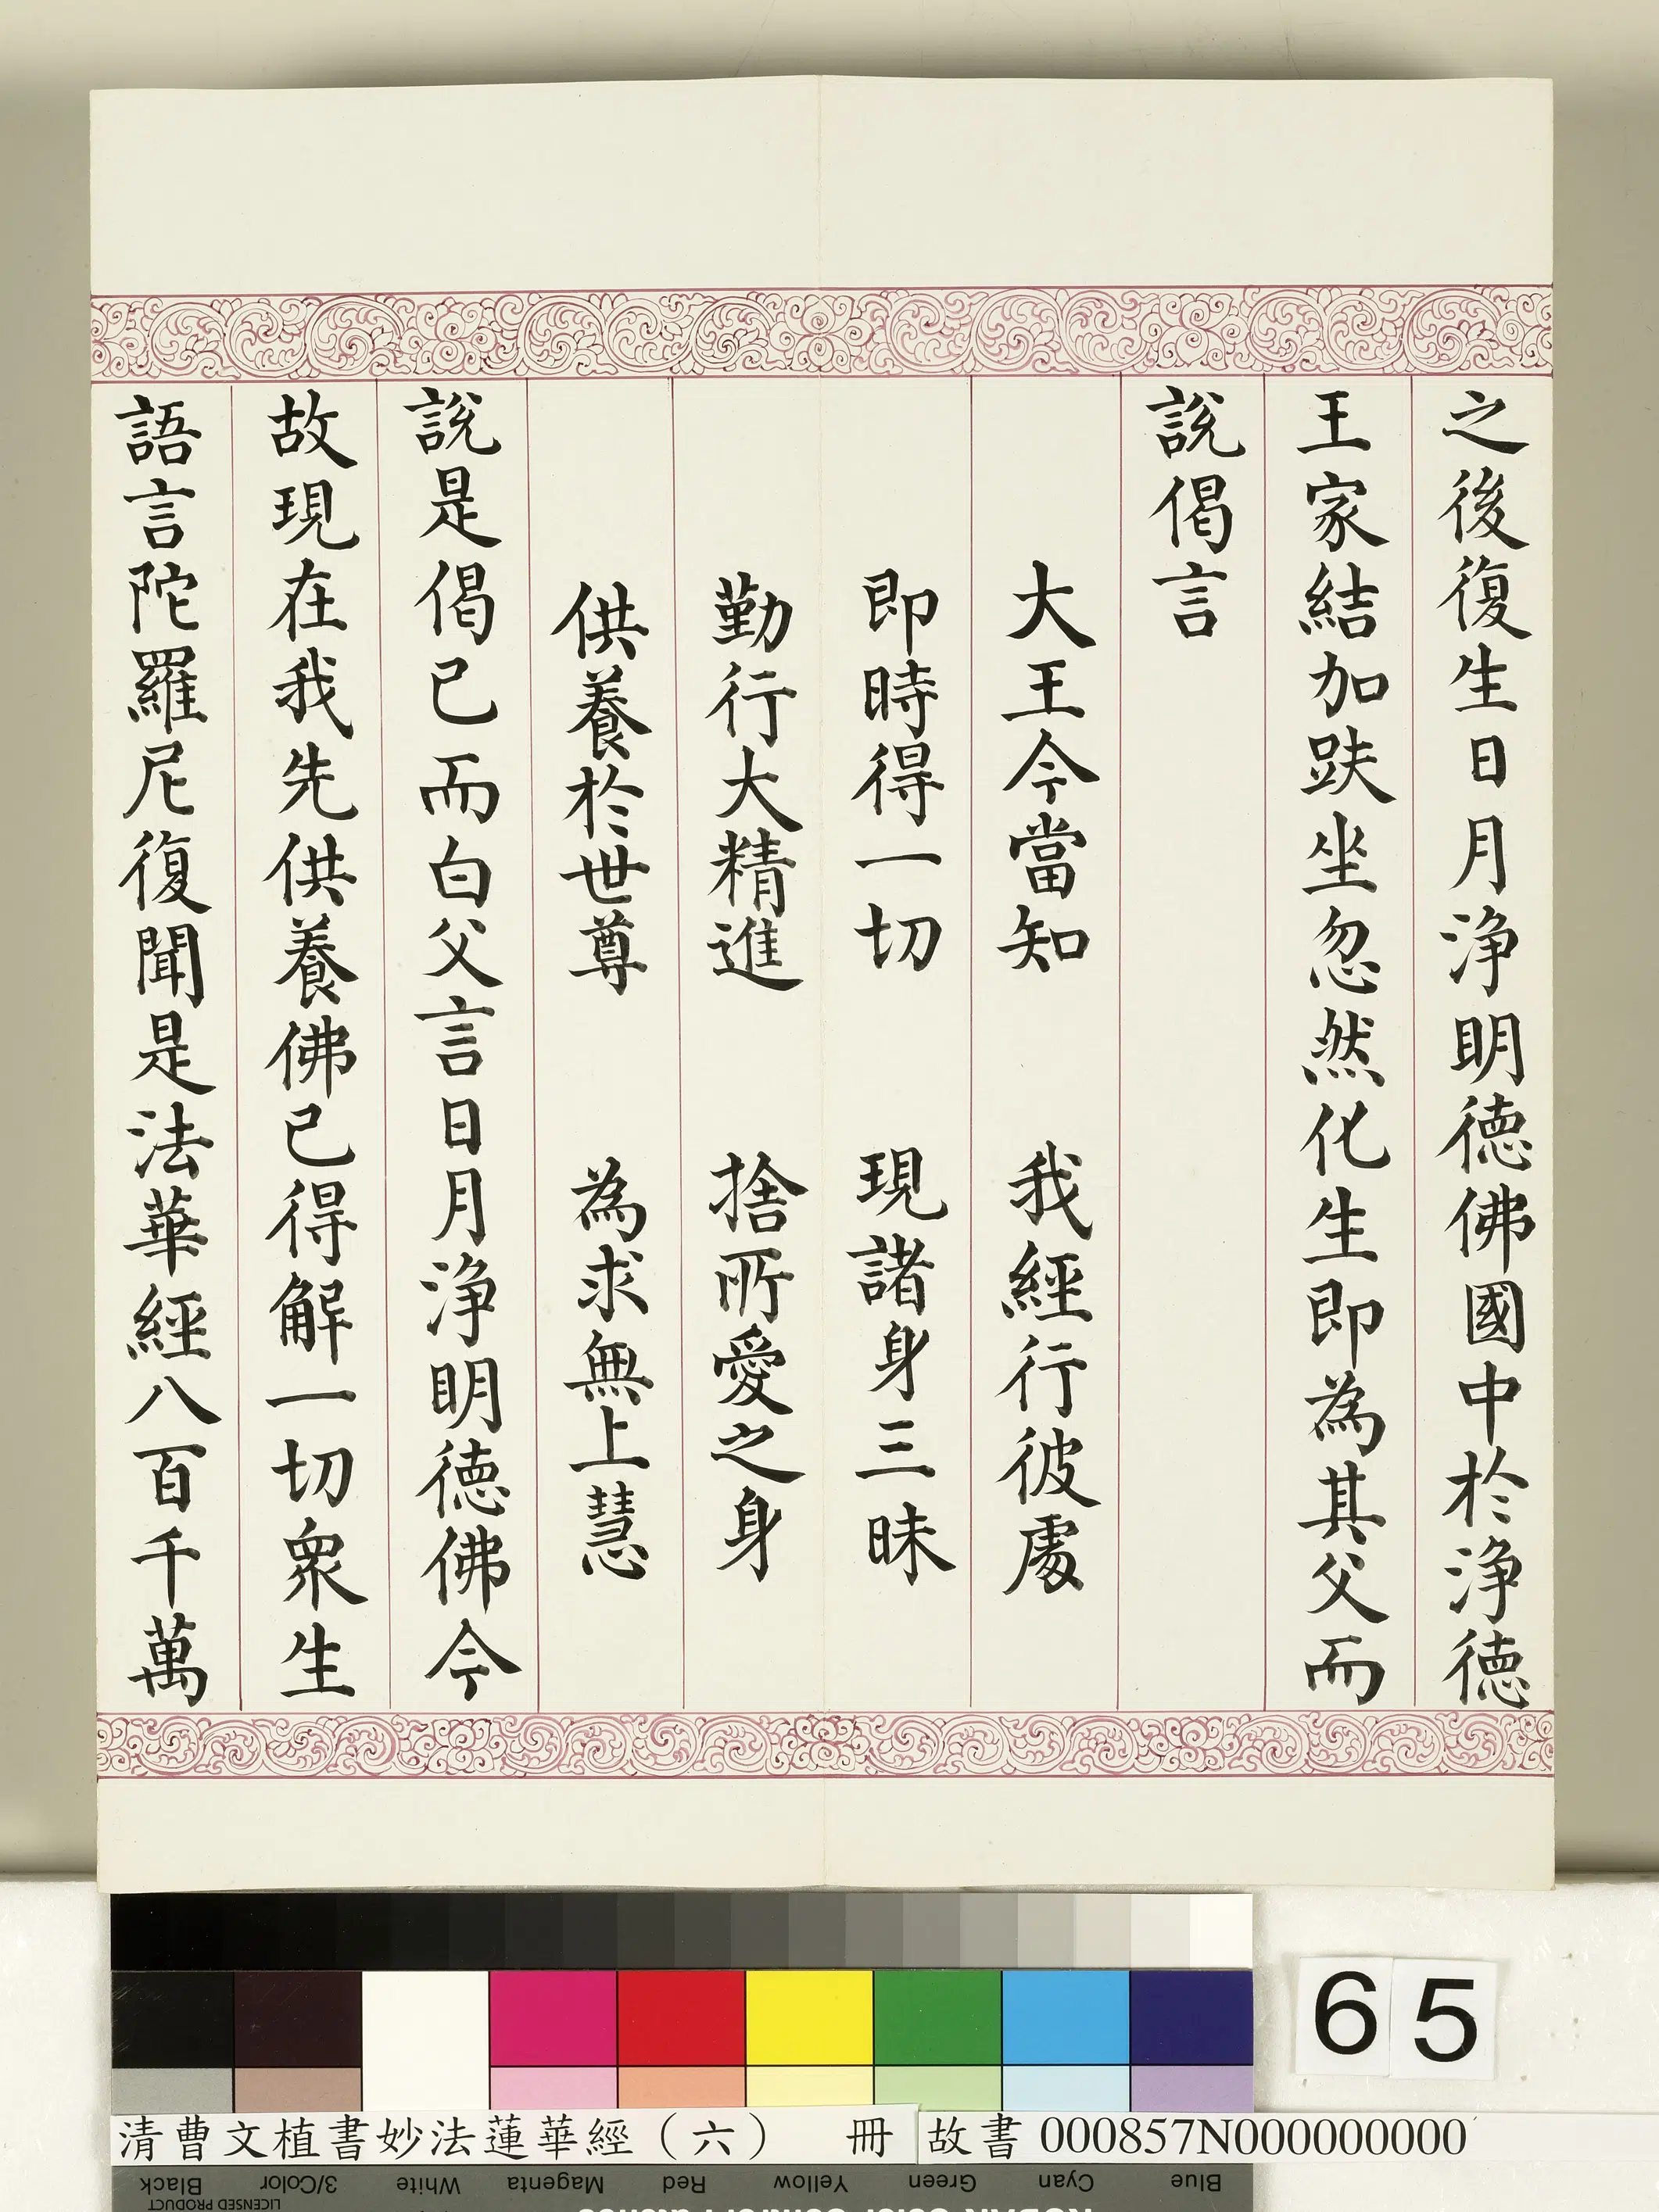 之後復生日月淨明德佛國中於淨德
王家結加趺坐忽然化生即為其父而
說偈言
大王今當知　我經行彼處
即時得一切　現諸身三昧
勤行大精進　捨所愛之身
供養於世尊　為求無上慧
說是偈已而白父言日月淨明德佛今
故現在我先供養佛已得解一切眾生
語言陀羅尼復聞是法華經八百千萬
65
清曹文植書妙法蓮華經（六）　冊
故書000857N000000000
Black 3/Color White Magenta Red Yellow Green Cyan Blue
LICENSED PRODUCT